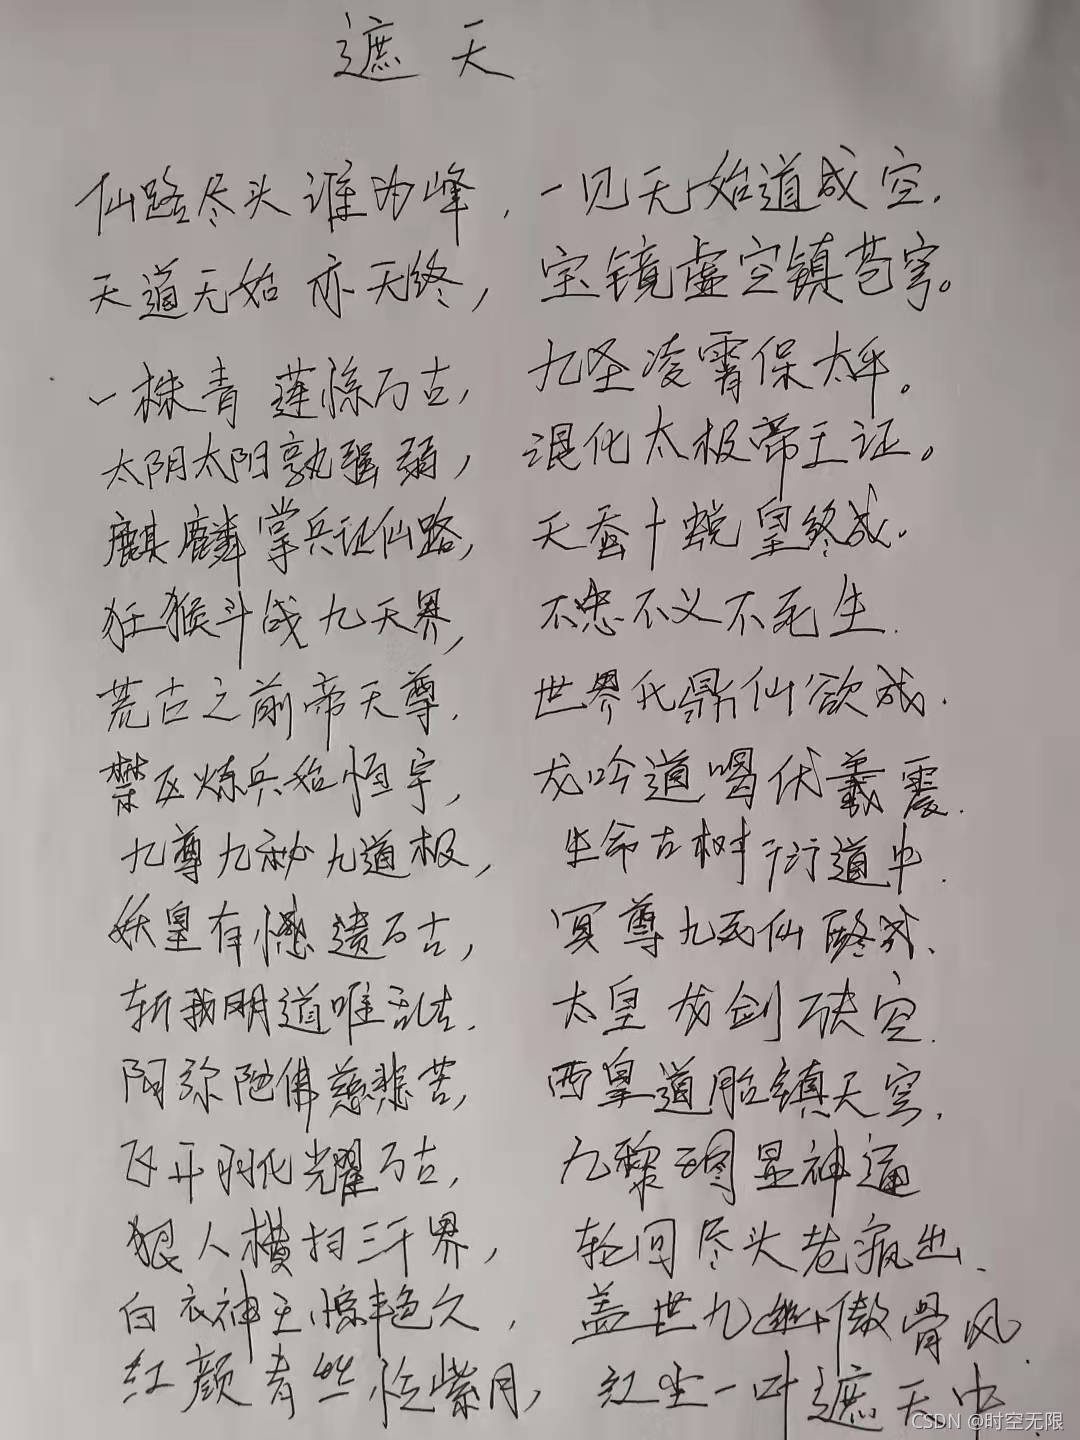 遮天
仙路尽头谁为峰，一见无始道成空．
天道无始亦无终，宝镜虚空镇苍穹。
一株青莲惊万古，九圣凌霄保太平。
太阴太阳孰强弱，混化太极帝王证。
麒麟掌兵证仙路，天蚕十蜕皇终成．
狂猴斗战九天界，不忠不义不死生．
荒古之前帝天尊．世界代鼎仙欲成．
禁区炼兵始恒宇，龙吟道喝伏羲震．
九尊九秘九道极，生命古树衍道中．
妖皇有憾遗万古，冥尊九死仙路成．
斩我明道唯乱古．太皇龙剑破空．
阿弥陀佛慈悲苦，西皇道胎镇天穹．
飞升羽化耀万古，九黎图显神通
狠人横扫三千界，轮回尽头老疯出．
白衣神王惊艳久，盖世九幽傲骨风．
红颜青丝忆紫月，红尘一叶遮天中．
CSDN @时空无限